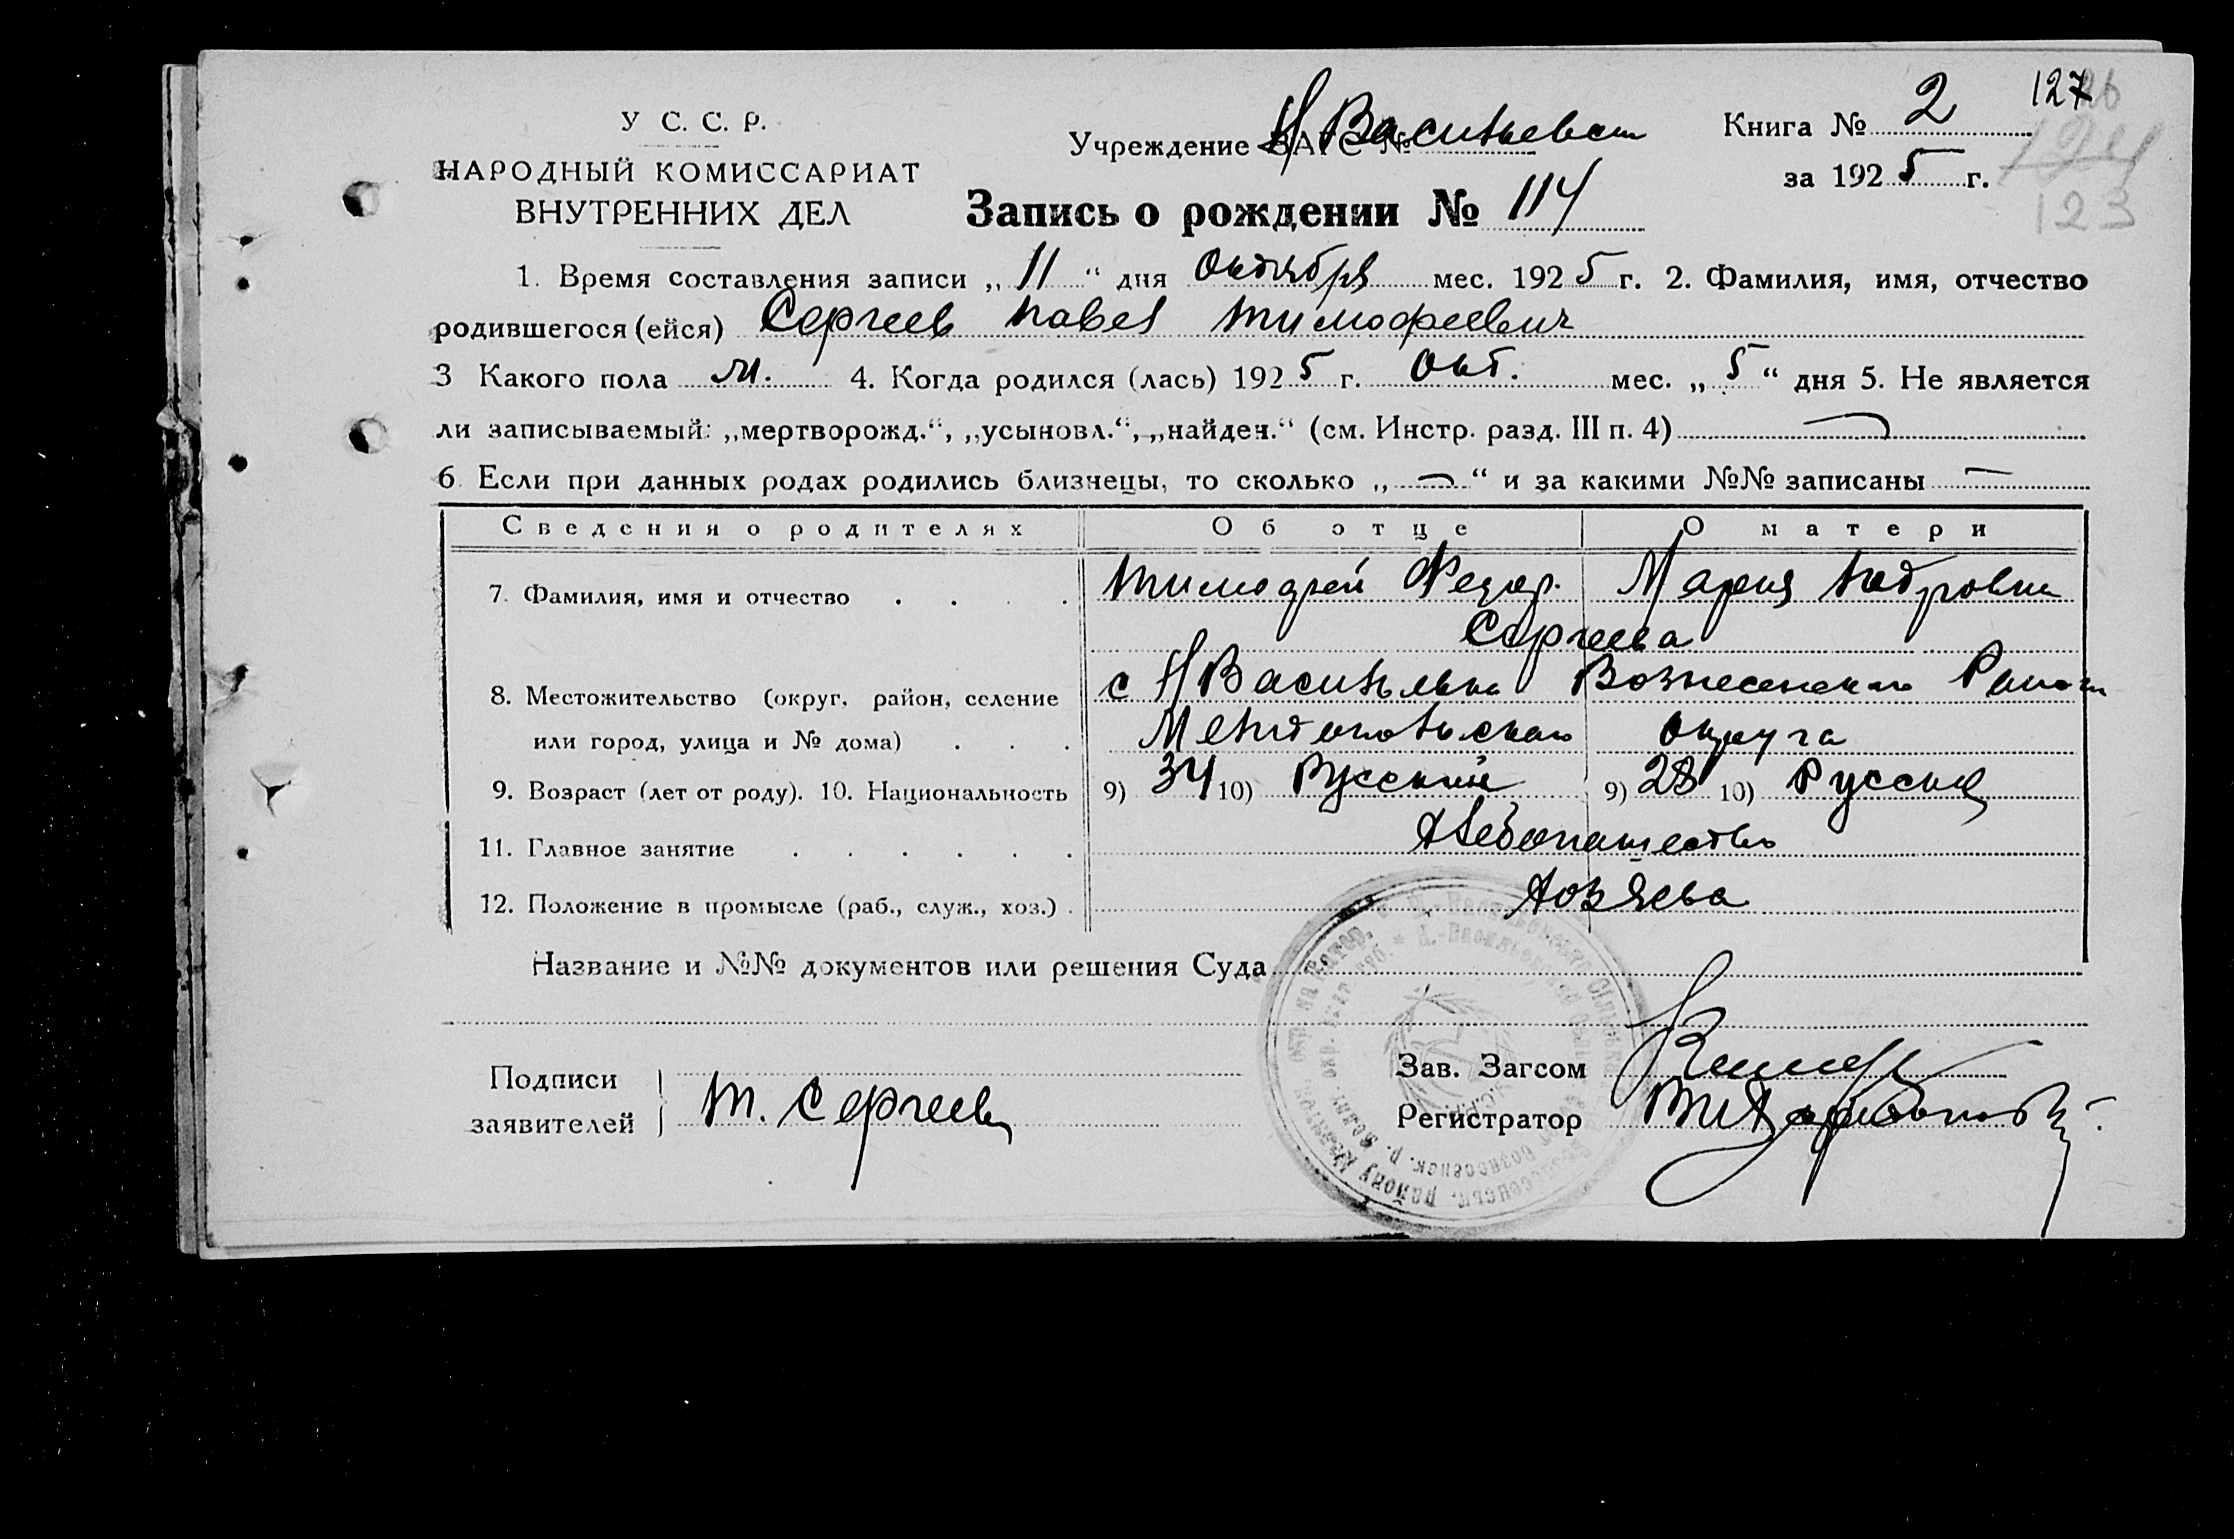 У С. С. Р.
НАРОДНЫЙ КОМИССАРИАТ
ВНУТРЕННИХ ДЕЛ
Учреждение ЗАГС № Н Васильевск
Книга № 2
127
за 1925 г.
123
Запись о рождении № 114
1. Время составления записи „11“ дня Октября мес. 1925 г. 2. Фамилия, имя, отчество
родившегося (ейся) Сергеев Павел Тимофеевич
3 Какого пола м. 4. Когда родился (лась) 1925 г. Окт. мес. „5“ дня 5. Не является
ли записываемый: „мертворожд.“, „усыновл.“, „найден.“ (см. Инстр. разд. III п. 4)
6. Если при данных родах родились близнецы, то сколько „—“ и за какими №№ записаны —
Сведения о родителях Об отце О матери
7. Фамилия, имя и отчество Тимофей Федор. Мария Петровна
Сергеева
8. Местожительство (округ, район, селение с Н Васильевка Вознесенского Района
или город, улица и № дома) Мелитопольского округа
9. Возраст (лет от роду). 10. Национальность 9) 34 10) Русский 9) 28 10) Русская
11. Главное занятие Хлебопашество
12. Положение в промысле (раб., служ., хоз.) Хозяева
Название и №№ документов или решения Суда
Подписи
заявителей Т. Сергеев
Зав. Загсом
Регистратор